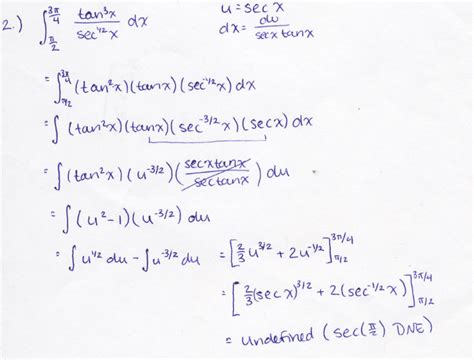 2.) ∫_{π/2}^{3π/4} tan³x / sec^{1/2}x dx    u = sec x
dx = du / (sec x tan x)
= ∫_{π/2}^{3π/4} (tan²x)(tan x)(sec^{-1/2}x) dx
= ∫ (tan²x)(tan x)(sec^{-3/2}x)(sec x) dx
= ∫ (tan²x)(u^{-3/2})(sec x tan x / sec tan x) du
= ∫ (u²-1)(u^{-3/2}) du
= ∫ u^{1/2} du - ∫ u^{-3/2} du = [2/3 u^{3/2} + 2u^{-1/2}]_{π/2}^{3π/4}
= [2/3 (sec x)^{3/2} + 2(sec^{-1/2} x)]_{π/2}^{3π/4}
= undefined (sec(π/2) DNE)